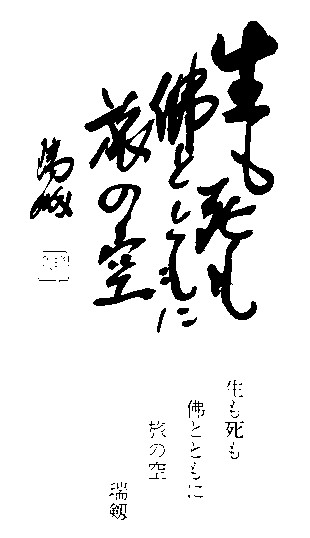 生も死も
佛とともに
旅の空
生も死も
佛とともに
旅の空
瑞剱